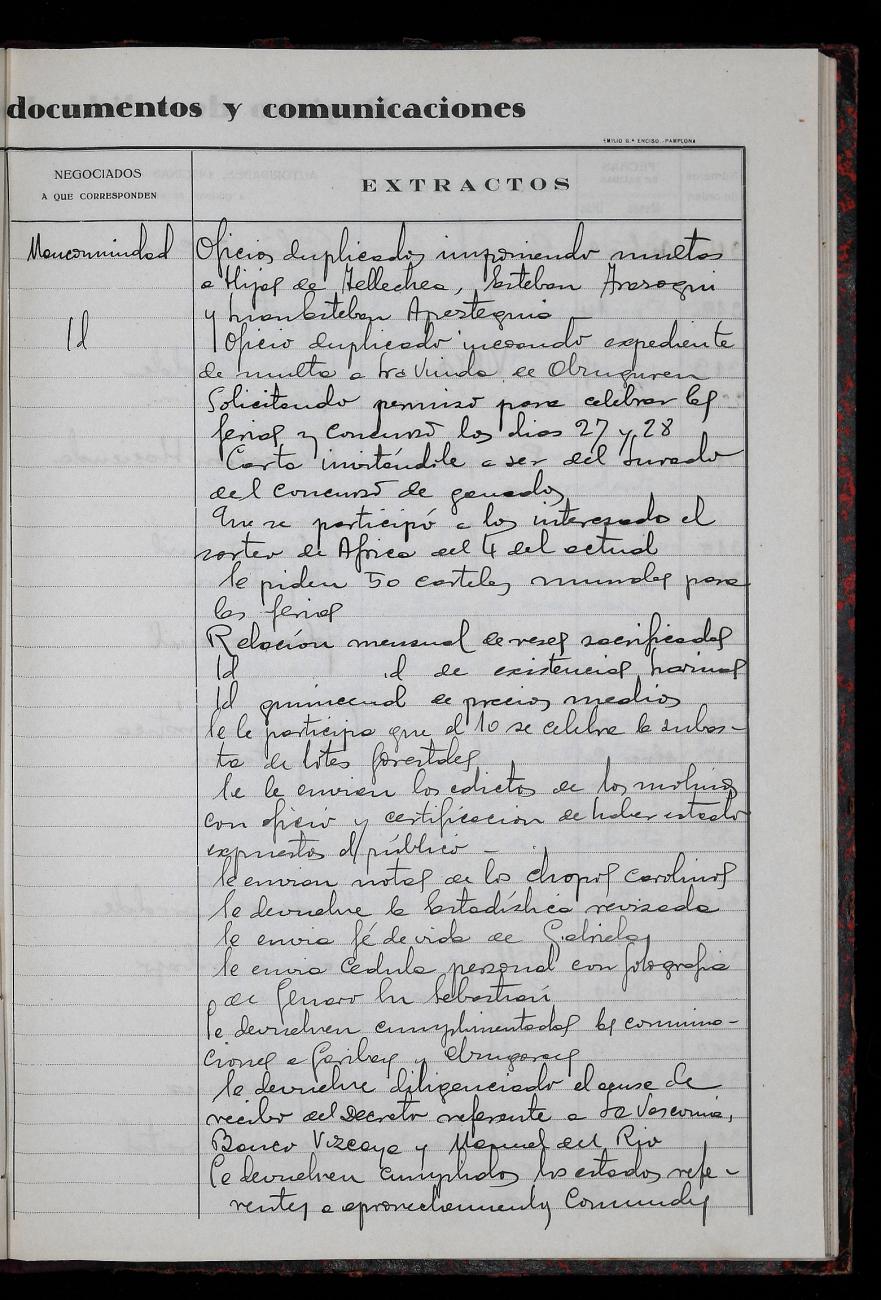 documentos y comunicaciones
EMILIO G.ª ENCISO.-PAMPLONA
NEGOCIADOS
A QUE CORRESPONDEN
EXTRACTOS
Mancomunidad Oficios duplicados imponiendo multas
a Hijos de Tellechea, Esteban
y Juan Esteban Apesteguia
Id Oficio duplicado incoando expediente
de multa a Sra Viuda de
Solicitando permiso para celebrar las
ferias y concurso los dias 27 y 28
Carta invitándole a ser del Jurado
del concurso de ganados
Que se participó a los interesado el
sorteo de Africa del 4 del actual
Se piden 50 carteles murales para
las ferias
Relación mensual de reses sacrificadas
Id id de existencias harinas
Id quincenal de precios medios
Se le participa que el 10 se celebra la subas-
ta de lotes forestales
Se le envian los edictos de los molinos
con oficio y certificacion de haber estado
expuestos al público -
Se envian notas de los chopos carolinos
Se devuelve la Estadística revisada
Se envia fé de vida de
Se envia Cedula personal con fotografia
de Genaro Sebastian
Se devuelven cumplimentadas las comunica-
ciones a Garibay y
Se devuelve diligenciado el acuse de
recibo del Decreto referente a La Vasconia,
Banco Vizcaya y Manuel del Rio
Se devuelven cumplidos los estados refe-
rentes a aprovechamientos Comunales